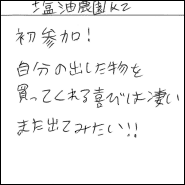 塩油農園K2
初参加!
自分の出した物を
買ってくれる喜びは凄い
また出てみたい!!